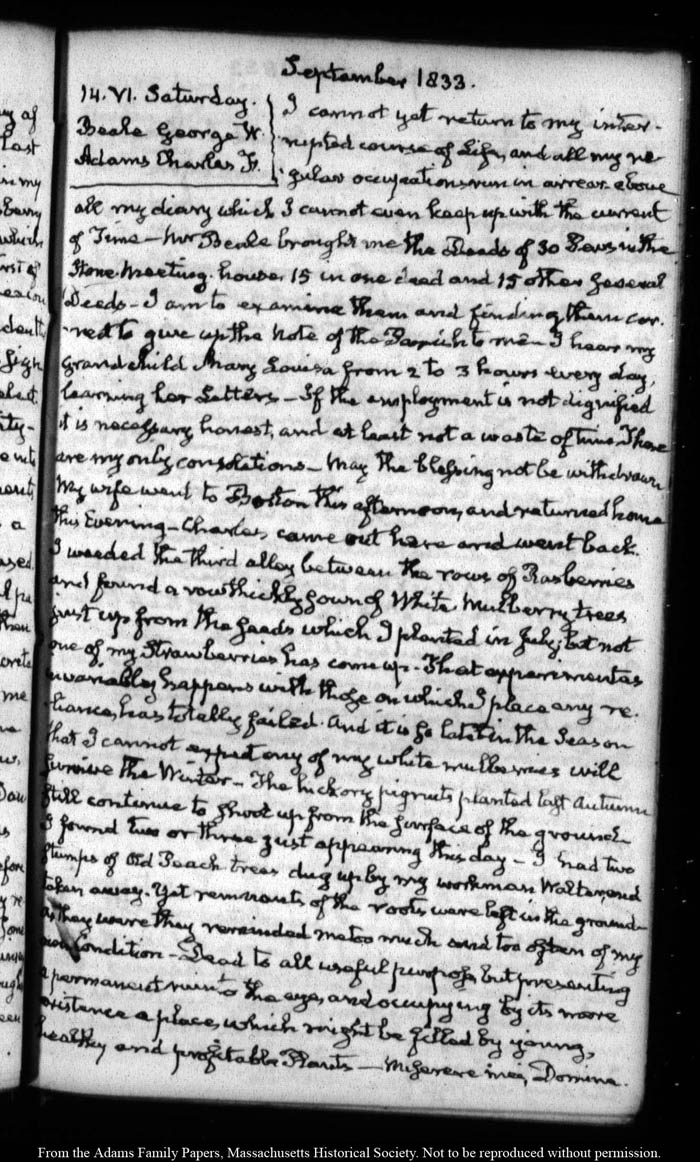 September 1833.
14. VI. Saturday.
Beale George W.
Adams Charles F.
I cannot yet return to my inter-
rupted course of Life, and all my re-
gular occupations run in arrear above
all my diary which I cannot even keep up with the current
of Time — Mr Beale brought me the Deeds of 30 Pews in the
Stone Meeting-house, 15 in one deed and 15 other several
Deeds — I am to examine them and finding them cor-
rect to give up the Note of the Parish to me — I hear my
Grandchild Mary Louisa from 2 to 3 hours every day,
learning her Letters — If the employment is not dignified
it is necessary honest, and at least not a waste of time. These
are my only consolations — May the blessing not be withdrawn
My wife went to Boston this afternoon, and returned home
this Evening — Charles came out here and went back.
I weeded the third alley between the rows of Rasberries
and found a row thickly sown of White Mulberry trees
just up from the seeds which I planted in July; but not
one of my Strawberries has come up. That experiment as
invariably happens with those on which I place any re-
liance, has totally failed. And it is so late in the Season
that I cannot expect any of my white mulberries will
survive the Winter — The hickory pignuts planted last Autumn
still continue to shoot up from the surface of the ground
I found two or three just appearing this day — I had two
stumps of old Peach trees dug up by my workman Walter, and
taken away. Yet remnants of the roots were left in the ground
as they were they reminded me too much and too often of my
own Condition — Dead to all useful purpose but presenting
a permanent ruin to the eye, and occupying by its mere
existence a place, which might be filled by young,
healthy and profitable Plants — Miserere mei, Domine.
From the Adams Family Papers, Massachusetts Historical Society. Not to be reproduced without permission.